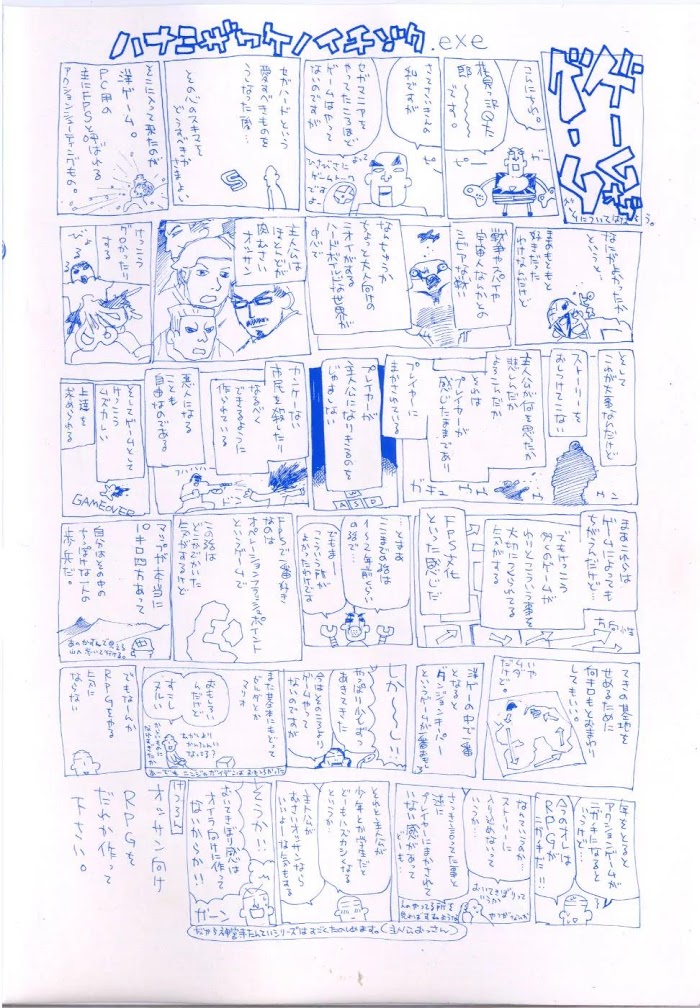 ハナミザワケノイチゾク.exe
ゲームざ
グームー
こんにちは。
です。
ピー
ガ
さてさいきんの
私ですが
セガマニアを
やってたころほど
ゲームはやって
ないのですが
ひさびさに
ゲームトーク
ですよ。
セガハードという
愛すべきものを
うしなった僕…
その心のスキマを
そこに入って来たのが
洋ゲーム。
PC用の
主にFPSと呼ばれる
アクションシューティングもの。
なにが良かったか
というと
まあもともと
好きだった
わけなんだけど
戦争やスパイや
宇宙人なんかとの
シビアな戦い
なんちゅうか
ちょっと大人向けの
ニオイがする
ハードボイルドな世界が
中心で
主人公は
ほとんどが
肉むさい
オッサン
けっこう
グロかったり
する
そして
これが大事なんだけど
ストーリーを
おしつけてこない
主人公が何を思ったか
悲しんだか
よろこんだか
それは
プレイヤーが
感じたままであり
プレイヤーに
まかされている
プレイヤーが
主人公になりきるのを
じゃましない
W
A S D
カンケーない
市民を殺したり
なるべく
できるように
作られている
悪人になる
ことも
自由なのである
フハハハ
ドン
そしてゲームとして
けっこう
ムズカしい
上達を
求められる
GAMEOVER
ガチュ
ウゥ
ウン
まあこれらは
ゲームによっても
ちがうんだけど…
でもけっこう
多くのゲームが
わりとこういう事を
大切にしてつくられてる
気がする
方向性
FPS文化
といった感じだ
…とまあ
ここまでの話は
1〜2年前ぐらい
の話で…
FPSで一番好き
なのは
オペレーションフラッシュポイント
というゲームで
この話は
どこかでしたような
気がするけど
マップが本当に
10キロ四方あって
自分はその中の
ちっぽけな一人の
歩兵だ。
あのかすんで見える
山へ歩いて行ける。
てきの基地を
せめるために
何キロもとおまわり
してもいい。
いや
ムダ
だけど。
洋ゲーの中で一番
となると
ダンジョンキーパー
というゲームが一番ます。
しか〜〜し!!
やっぱり少しずつ
あきてきた
今はそのころより
ゲームやって
ないのですが
また基本にもどって
ゼルダとか
マリオ
おもしろい
んだけど
すこし
ヌルい
むかしより
かんたんに
なってる?
あーでも ニンジャガイデンはおもしろかった
でもなんか
RPGをやる
気に
ならない
年をとると
アクションゲームが
ニガテになると
いうけど…
今のオレは
RPGが
ニガテだ!!
なんていうのか…
ストーリーに
入り込めないなっ
ていうか…
おいてきぼりって
いうか
さっき言ってた事と
逆に
プレイヤーにまかされて
いない感じが
どーも…
それと主人公が
少年とか学生だと
どーもハズカシくなる
というか…
主人公が
むさいオッサンなら
いいよーな気もする
そうか!!
おいてきぼり感は
オイラ向けに作って
ないからか!!
ガーン
けつろん
オッサン向け
RPGを
だれか作って
下さい。
だから神宮寺たんていシリーズはすごくたのしめます。(主人公おっさん)